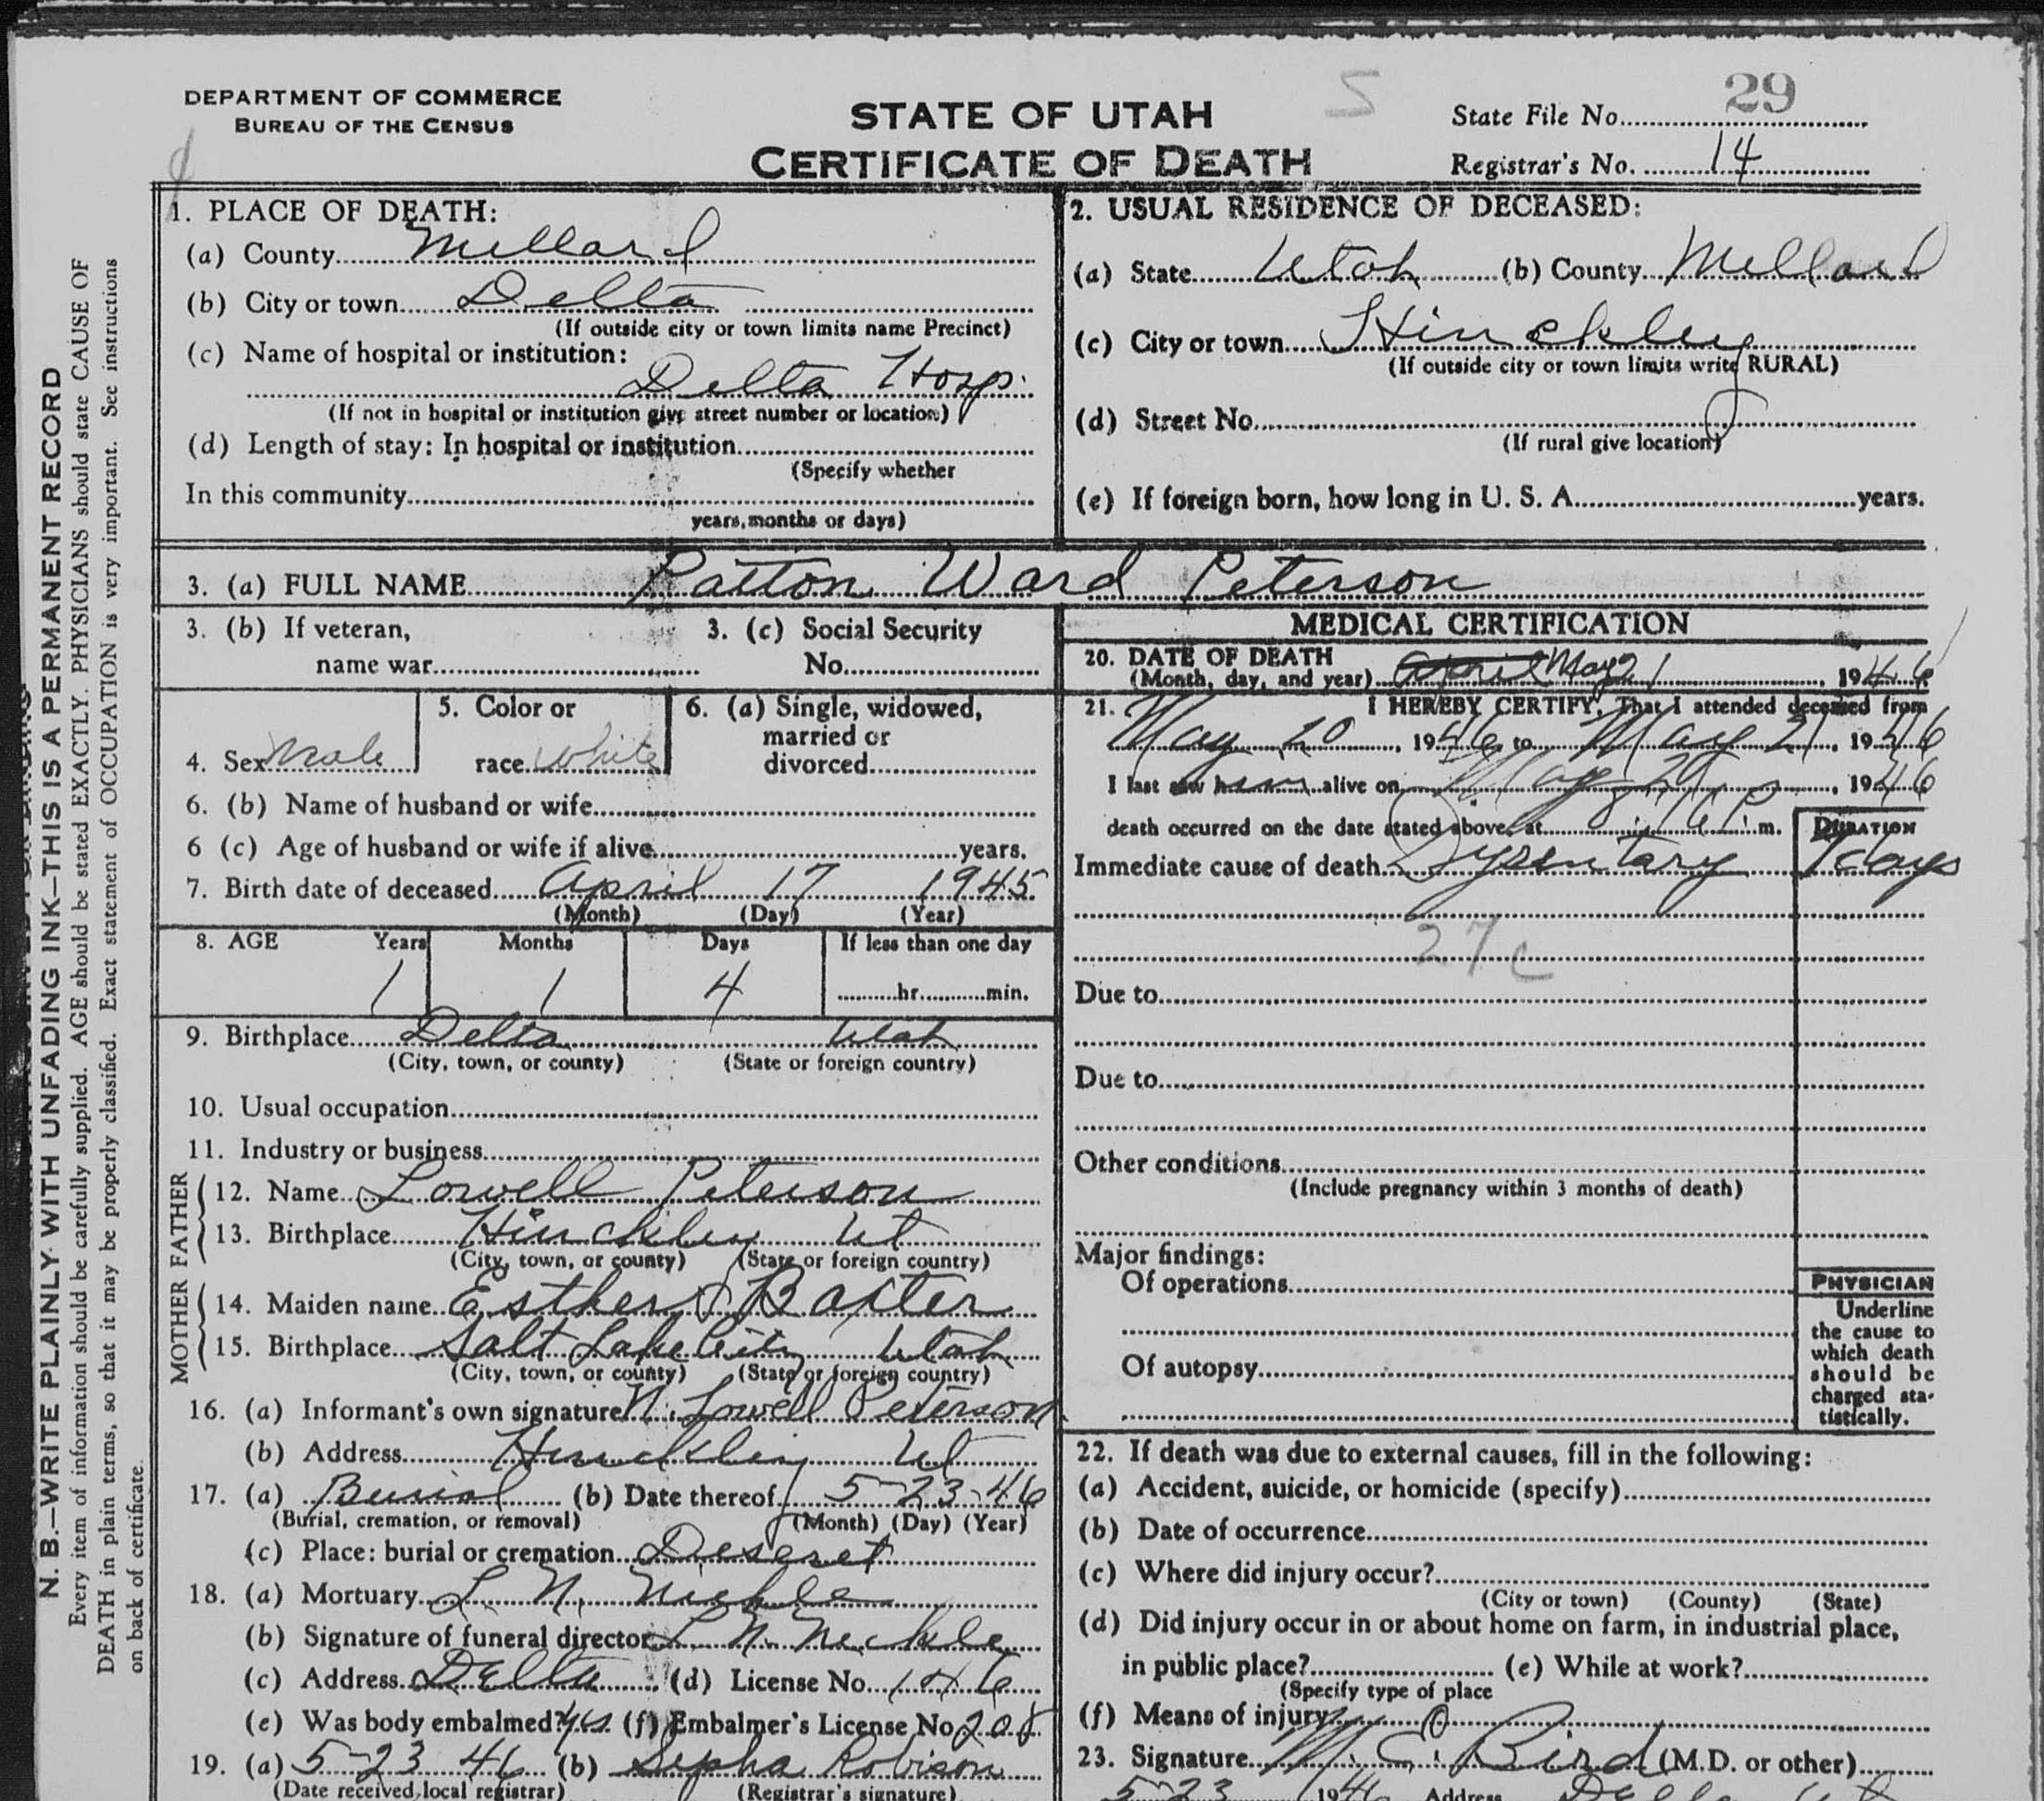 DEPARTMENT OF COMMERCE
BUREAU OF THE CENSUS
STATE OF UTAH
CERTIFICATE OF DEATH
State File No. 29
Registrar's No. 14
1. PLACE OF DEATH:
(a) County Millard
(b) City or town Delta
(If outside city or town limits name Precinct)
(c) Name of hospital or institution:
Delta Hosp.
(If not in hospital or institution give street number or location)
(d) Length of stay: In hospital or institution
(Specify whether
In this community
years, months or days)
2. USUAL RESIDENCE OF DECEASED:
(a) State Utah (b) County Millard
(c) City or town Hinckley
(If outside city or town limits write RURAL)
(d) Street No.
(If rural give location)
(e) If foreign born, how long in U. S. A. years.
3. (a) FULL NAME Patton Ward Peterson
3. (b) If veteran,
name war
3. (c) Social Security
No.
4. Sex Male
5. Color or
race White
6. (a) Single, widowed,
married or
divorced
6. (b) Name of husband or wife
6 (c) Age of husband or wife if alive years.
7. Birth date of deceased April 17 1945
(Month) (Day) (Year)
8. AGE Years Months Days If less than one day
1 1 4 hr. min.
9. Birthplace Delta Utah
(City, town, or county) (State or foreign country)
10. Usual occupation
11. Industry or business
FATHER
12. Name Lowell Peterson
13. Birthplace Hinckley Ut
(City, town, or county) (State or foreign country)
MOTHER
14. Maiden name Esther Baxter
15. Birthplace Salt Lake City Utah
(City, town, or county) (State or foreign country)
16. (a) Informant's own signature N. Lowell Peterson
(b) Address Hinckley Ut
17. (a) Burial (b) Date thereof 5-23-46
(Burial, cremation, or removal) (Month) (Day) (Year)
(c) Place: burial or cremation Deseret
18. (a) Mortuary L. N. Nickle
(b) Signature of funeral director L N. Nickle
(c) Address Delta (d) License No.
(e) Was body embalmed? Yes (f) Embalmer's License No. 208
19. (a) 5-23 46 (b) Robison
(Date received local registrar) (Registrar's signature)
MEDICAL CERTIFICATION
20. DATE OF DEATH
(Month, day, and year) April May 21, 1946
21. I HEREBY CERTIFY, That I attended deceased from
May 20, 1946 to May 21, 1946
I last saw him alive on May, 1946
death occurred on the date stated above, at m.
DURATION
Immediate cause of death Dysentary days
27c
Due to
Due to
Other conditions
(Include pregnancy within 3 months of death)
Major findings:
Of operations
Of autopsy
PHYSICIAN
Underline
the cause to
which death
should be
charged sta-
tistically.
22. If death was due to external causes, fill in the following:
(a) Accident, suicide, or homicide (specify)
(b) Date of occurrence
(c) Where did injury occur?
(City or town) (County) (State)
(d) Did injury occur in or about home on farm, in industrial place,
in public place? (e) While at work?
(Specify type of place
(f) Means of injury
23. Signature M. E. Bird (M.D. or other)
5-23 1946 Address Delta Ut
N. B.—WRITE PLAINLY WITH UNFADING INK—THIS IS A PERMANENT RECORD
Every item of information should be carefully supplied. AGE should be stated EXACTLY. PHYSICIANS should state CAUSE OF
DEATH in plain terms, so that it may be properly classified. Exact statement of OCCUPATION is very important. See instructions
on back of certificate.